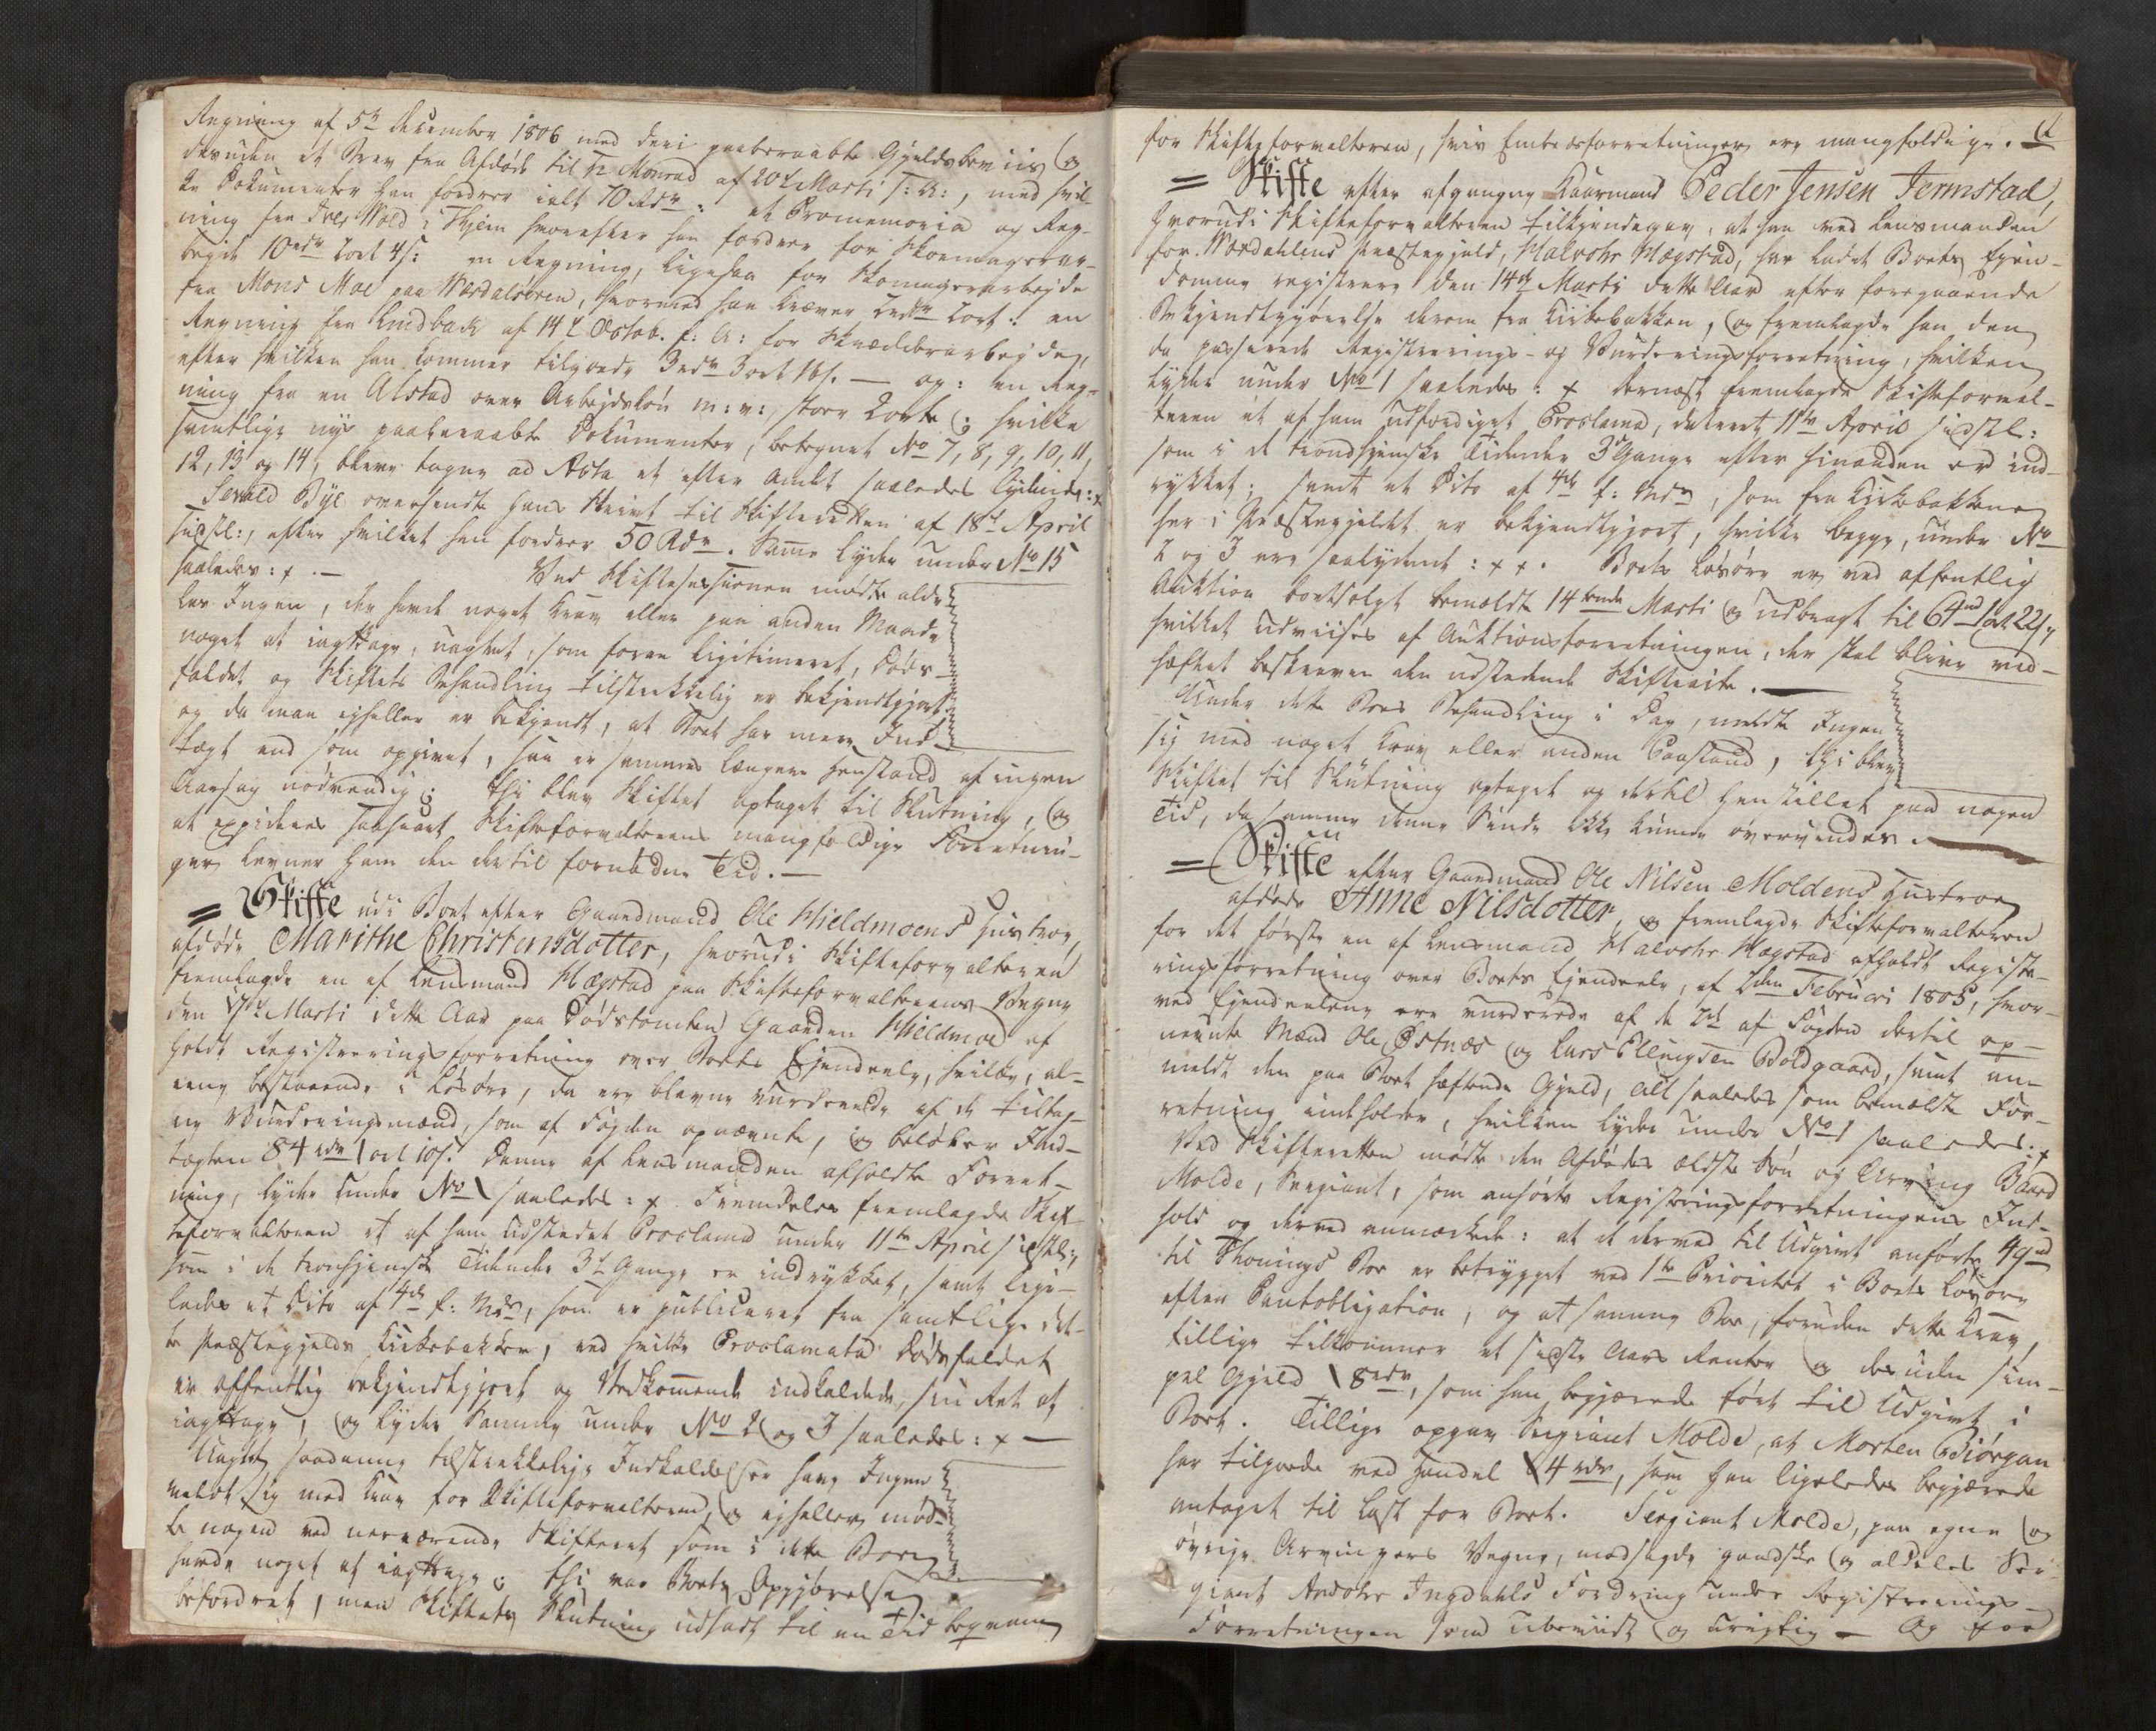 Regning af 5te December 1806 med deri paaberaabte Gjeldsbeviis og
desuden et Brev fra Afdøde til Hr Monrad af 20de Marti s: A:, med hvil-
ke Dokumenter han fordrer ialt 70 Rdr: et Promemoria og Reg-
ning fra Iver Wold i Hjem hvorefter han fordrer for Skomagerar-
beide 10 rdr 1 ort 4 s: en Regning, ligesaa for Skomagerarbejde
fra Mons Moe paa Werdalsøren, hvormed han kræver 2 rdr 2 ort: en
Regning fra Lindback af 14de Octob. f: A: for Skrædderarbejde,
efter hvilken han kommer tilgode 3 rdr 3 ort 16 s. — og: en Reg-
ning fra en Alstad over Arbejdsløn m: v:, stor 2 ort; hvilke
samtlige nys paaberaabte Dokumenter, betegnet No 7, 8, 9, 10, 11,
12, 13 og 14, bleve tagne ad Acta et efter andet saaledes lydende: x
Sevald Bye oversendte hans Skrivt til Skifteretten af 18de April
sidstl:, efter hvilket han fordrer 50 Rdr. Samme lyder under No 15
saaledes: x. — Ved Skiftesessionen mødte alde-
les Ingen, der havde noget Krav eller paa anden Maade
noget at iagttage, uagtet, som foran ligitimeret, Døds-
faldet og Skiftets Behandling tilstrekkelig er bekjendtgjort
og da man ejheller er bekjendt, at Boet har mere Ind-
tægt end som opgivet, saa er sammes længere Henstand af ingen
Aarsag nødvendig; thi blev Skiftet optaget til Slutning, og
at expideres saasnart Skifteforvalterens mangfoldige Forretnin-
ger levner ham den dertil fornødne Tid. —
= Skifte udi Boet efter Gaardmand Ole Hieldmoens Hustroe,
afdøde Marithe Christensdotter, hvorudi Skifteforvalteren
fremlagde en af Lensmand Hægstad paa Skifteforvalterens Vegne
den Marti dette Aar paa Dødstomten Gaarden Hieldmoe af-
holdt Registreringsforretning over Boets Ejendeele, hvilke, al-
lene bestaaende i Løsøre, da ere blevne vurderede af de tiltag-
ne Vurderingsmænd, som af Fogden opnævnte, og beløber Ind-
tægten 84 rdr 1 ort 10 s. Denne af Lensmanden afholdte Forret-
ning, lyder under No 1 saaledes: x Fremdeles fremlagde Skif-
teforvalteren et af ham udstedet Proclama under 11te April sidstl:,
som i de tronhjemske Tidender 3de Gange er indrykket, samt lige-
ledes et Dito af 4de s: Mds, som er publiceret fra samtlige det-
te Præstegjelds Kirkebakker, ved hvilke Proclamata Dødsfaldet
er offentlig bekjendtgjort og Vedkommende indkaldede, sin Ret at
iagttage, og lyder Samme under No 2 og 3 saaledes: x —
Uagtet saadanne tilstrækkelige Indkaldelser have Ingen
meldt sig med Krav for Skifteforvalteren, og ejheller mød-
te nogen ved nerværende Skifteret som i dette Boe
havde noget at iagttage; thi var Boets Opgjørelse
befordret, men Skiftets Slutning udsadt til en Tid beqvem
for Skifteforvalteren, hvis Embedsforretninger ere mangfoldige. —
= Skifte efter afgangne Huusmand Peder Jensen Jermstad,
hvorudi Skifteforvalteren tilkjendegav, at han ved Lensmanden
for Værdahlens Præstegjeld, Halvohr Hægstad, har ladet Boets Ejen-
domme registrere den 14de Marti dette Aar efter foregaaende
Bekjendtgjørelse derom fra Kirkebakken, og fremlagde han den
da passerede Registrerings- og Vurderingsforretning, hvilken
lyder under No 1 saaledes: x dernæst fremlagde Skifteforval-
teren et af ham udferdiget Proclama, dateret 11te April sidstl:
som i de trondhjemske Tidender 3de Gange efter hinanden er ind-
rykket; samt et Dito af 4de s: Mds, som fra Kirkebakkene
her i Præstegjeldet er bekjendtgjort, hvilke begge, under No
2 og 3 ere saalydende: x x. Boets Løsøre er ved offentlig
Auktion bortsolgt bemældte 14tende Marti og udbragt til 61 rdr 1 ort 22 s.,
hvilket udviises af Auktionsforretningen, der skal blive ved-
hæftet beskreven den udstedende Skifteacte. —
Under dette Boes Behandling i Dag, meldte Ingen
sig med noget Krav eller anden Paastand, thi blev
Skiftet til Slutning optaget og dertil henstillet paa nogen
Tid, da samme denne Sinde ikke kunne overvindes. —
= Skifte efter Gaardmand Ole Nilsen Moldens Hustroe
afdøde Anne Nilsdotter, og fremlagde Skifteforvalteren
for det første en af Lensmand Halvohr Hægstad afholdt Registre-
ringsforretning over Boets Ejendeele, af 2den Februari 1805, hvor-
ved Ejendeelene ere vurderede af de 2de af Fogden dertil op-
nevnte Mænd Ole Østnæs og Lars Ellingsen Boldgaard, samt an-
meldt den paa Boet hæftende Gjeld, alt saaledes som bemældte For-
retning indeholder, hvilken lyder under No 1 saaledes: x
Ved Skifteretten mødte den Afdødes ældste Søn og Arving Baard
Molde, Sergiant, som anhørte Registreringsforretningens Ind-
hold og derved anmærkede: at de derved til Udgivt anførte 49 rdr
til Thonings Boe er betrygget ved 1te Prioritet i Boets Løsøre
efter Pantobligation, og at samme Boe, foruden dette Krav,
tillige tilkommer et sidste Aars Renter og desuden sim-
pel Gjeld 18 rdr, som han begjærede ført til Udgivt i
Boet. Tillige opgav Sergiant Molde, at Morten Biørgan
har tilgode ved Handel 14 rdr, som han ligeledes begjærede
antaget til Last for Boet. Sergiant Molde, paa egne og
øvrige Arvingers Vegne, modsagde gandske og aldeles Ser-
giant Andohr Ingdahls Fordring under Registrerings-
Forretningen som ubeviist og urigtig — Og for